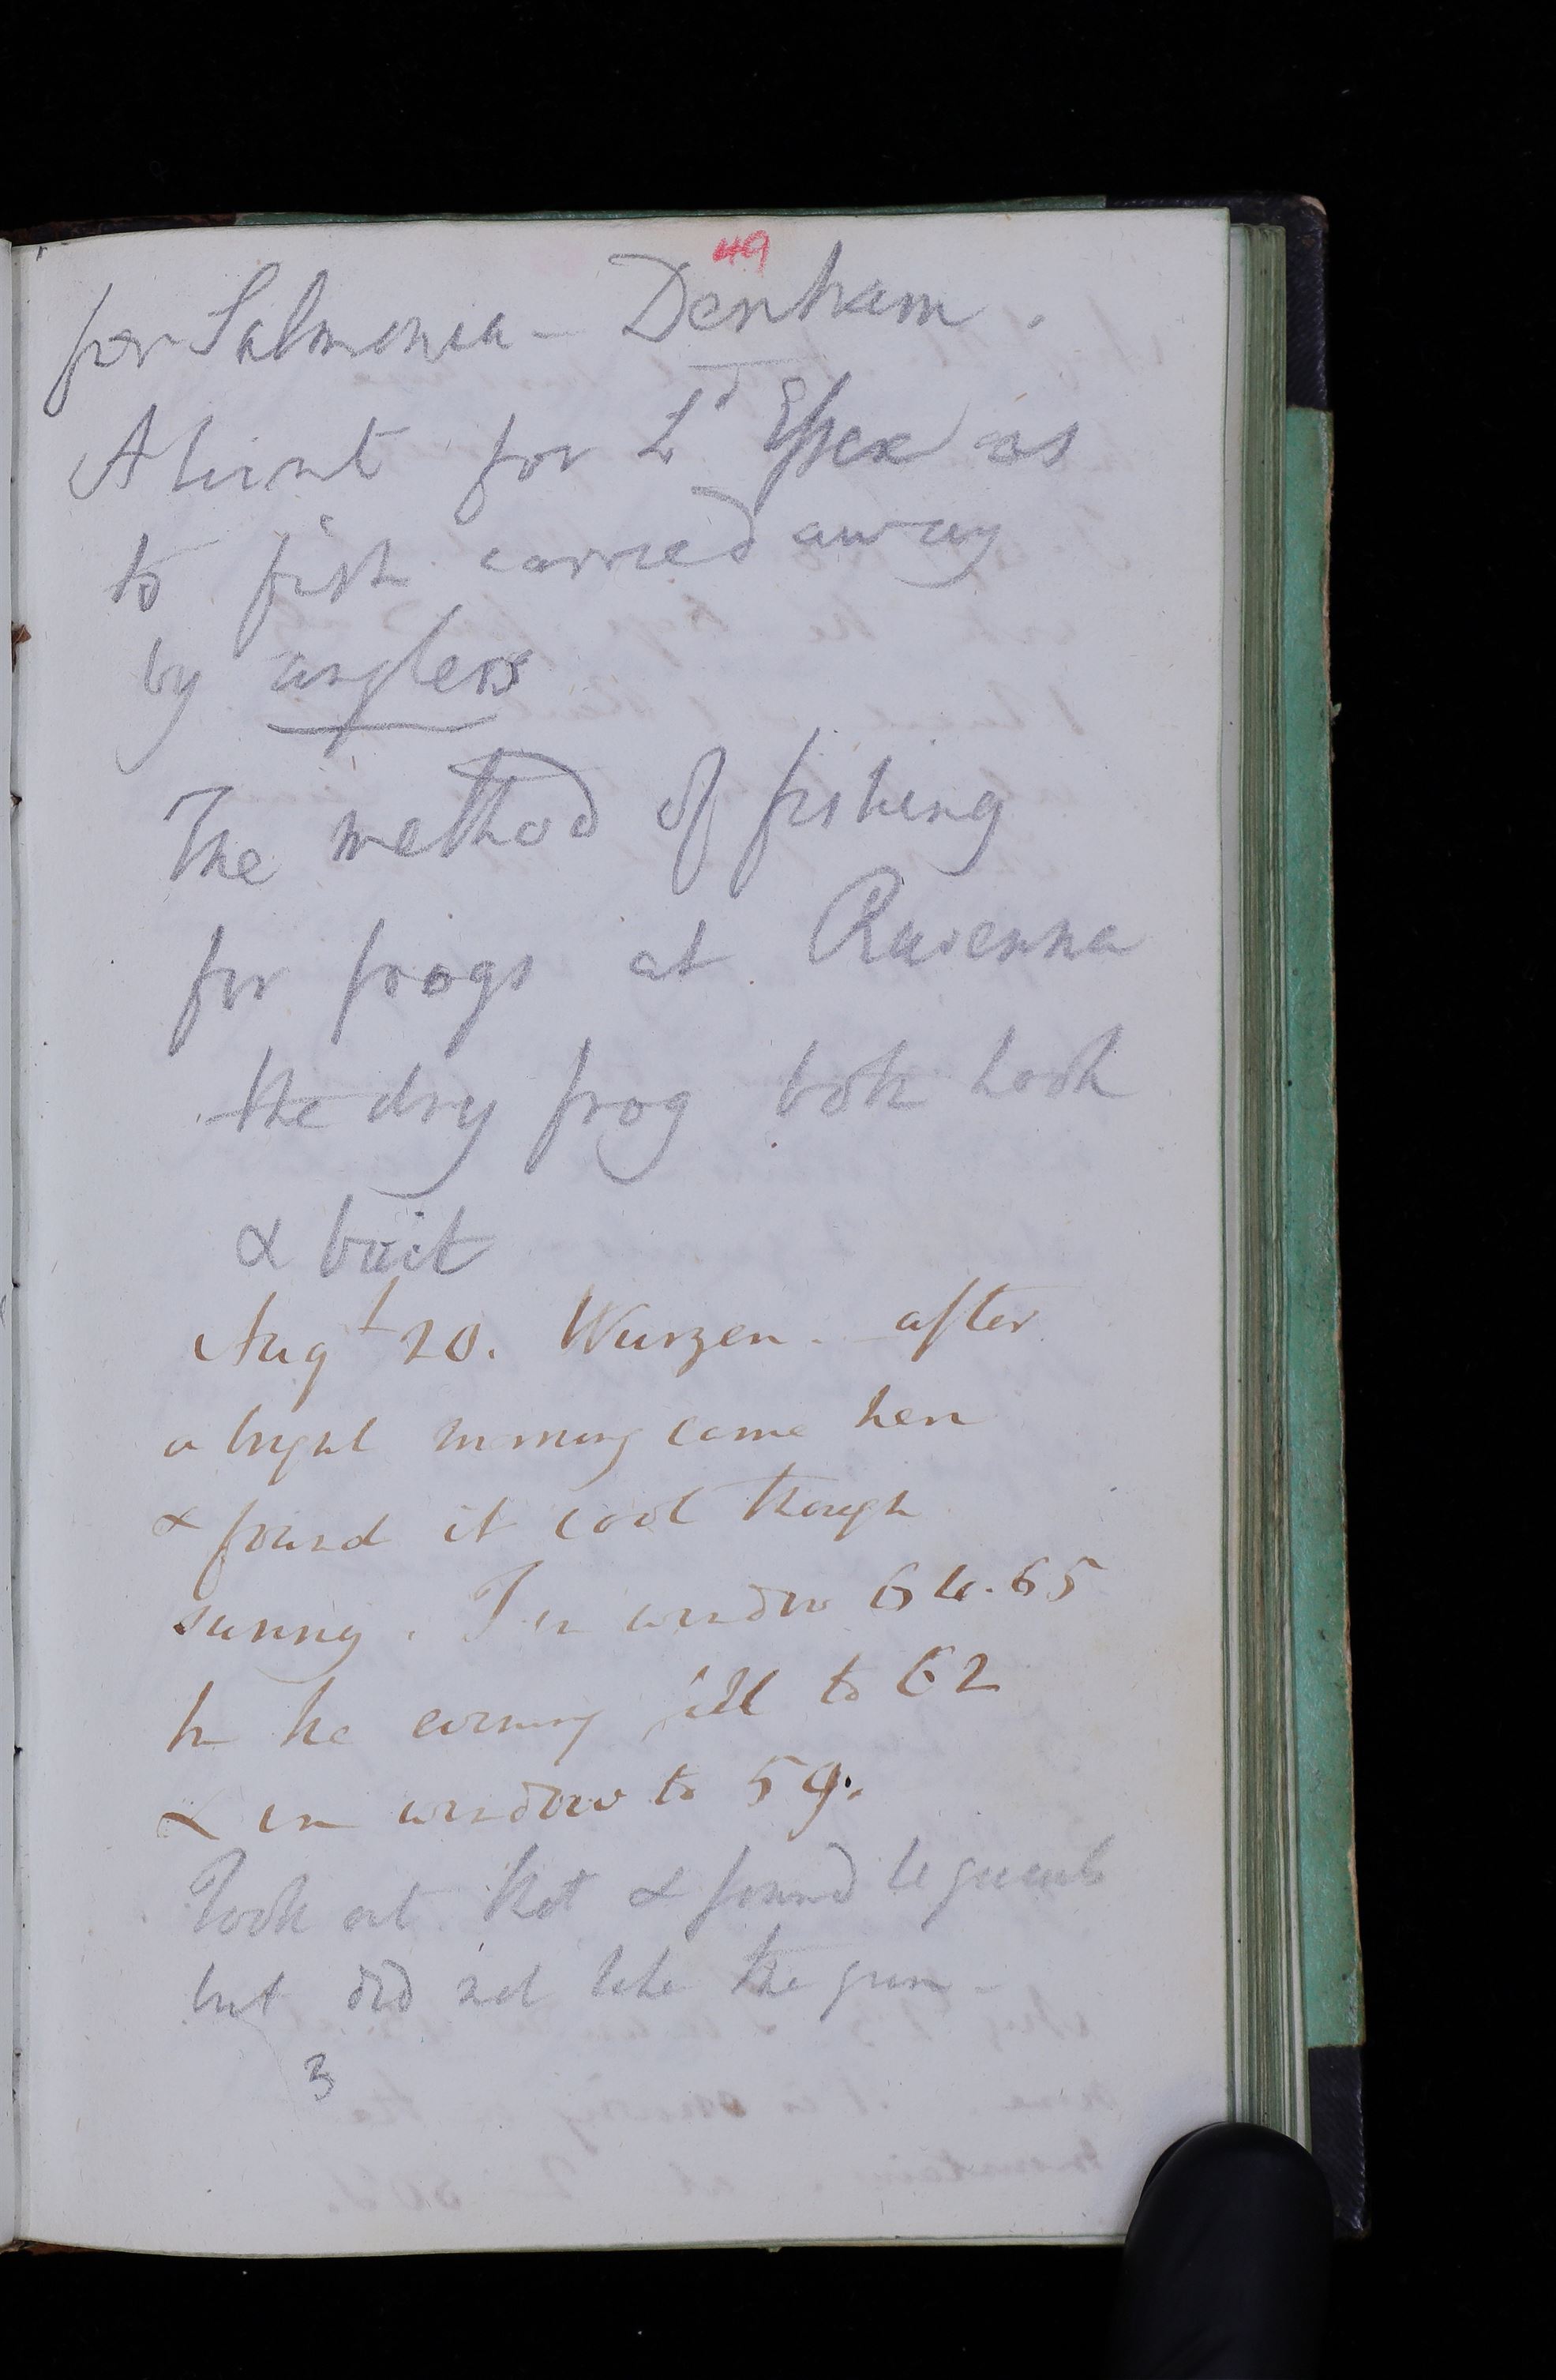 49
for Salmonia - Denham.
A hint for Ld Essex as
to fish carried away
by anglers
The method of fishing
for frogs at Ravenna
the dry frog both hook
& bait
Augt 20. Wurzen. after
a bright morning came here
& found it cool though
sunny. T in window 64.65
In the evening fell to 62
& in window to 59.
Took out that & found
but did not like the gun -
3